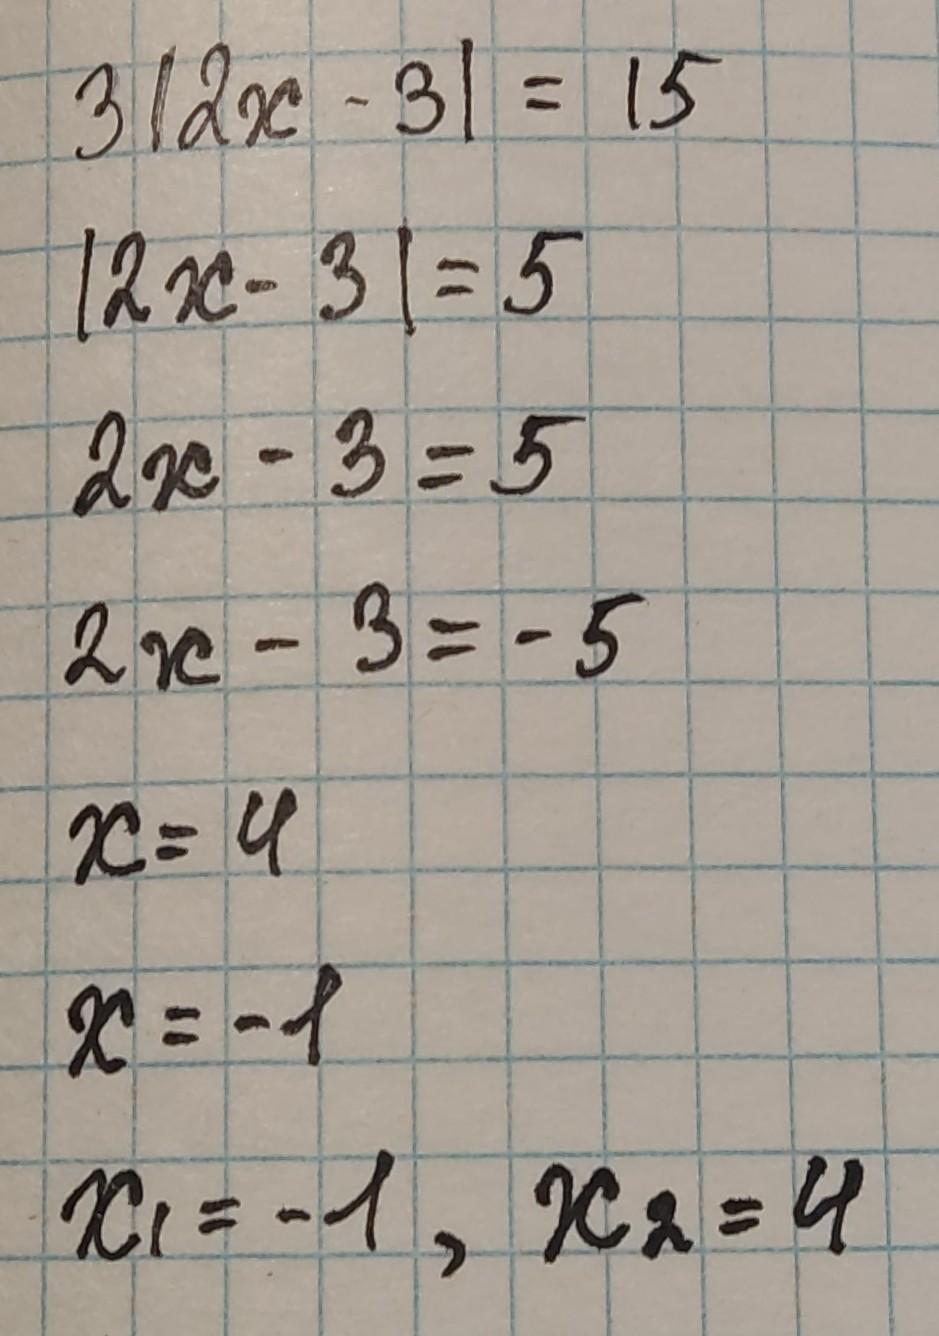 3|2x - 3| = 15
|2x - 3| = 5
2x - 3 = 5
2x - 3 = -5
x = 4
x = -1
x₁ = -1, x₂ = 4